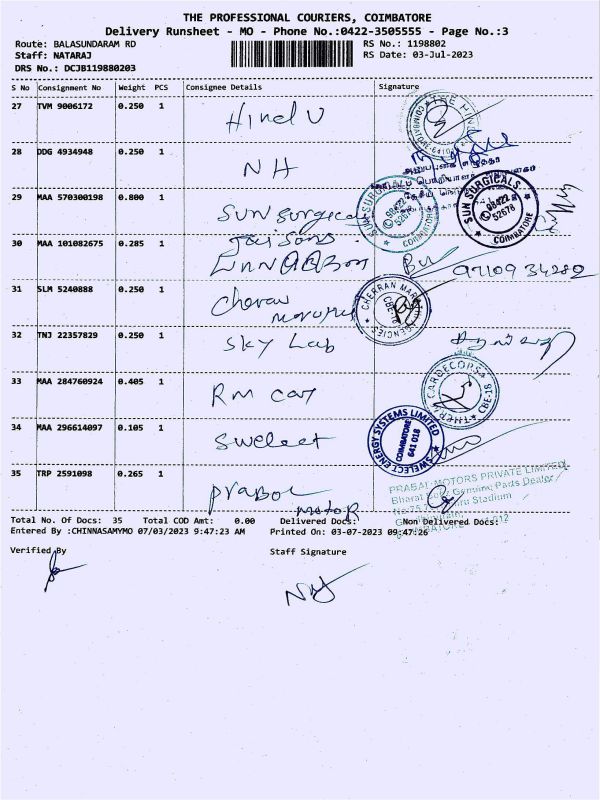 THE PROFESSIONAL COURIERS, COIMBATORE
Delivery Runsheet - MO - Phone No.:0422-3505555 - Page No.:3
Route: BALASUNDARAM RD
RS No.: 1198802
Staff: NATARAJ
RS Date: 03-Jul-2023
DRS No.: DCJB119880203
S No Consignment No Weight PCS Consignee Details Signature
27 TVM 9006172 0.250 1 Hindu
THE HIN
COIMBATORE-6410
28 DDG 4934948 0.250 1 NH
29 MAA 570300198 0.800 1 SUN Surgical
SUN SURGICALS
98422
52678
COIMBATORE
SUN SURGICALS
98422
52678
COIMBATORE
30 MAA 101082675 0.285 1 Jai Sons
97109 34282
31 SLM 5240888 0.250 1 Cheran
CHERRAN MAR
CBE-18
ENCIES
32 TNJ 22357829 0.250 1 Sky Lab
33 MAA 284760924 0.405 1 Rm car
CARDECORS
CBE-18
34 MAA 296614097 0.105 1 Swelect
SWELECT ENERGY SYSTEMS LIMITED
COIMBATORE
641 018
35 TRP 2591098 0.265 1 Prabol
motor
PRABAL MOTORS PRIVATE LIMITED
Bharat Benz Genuine Parts Dealer
Stadium
Total No. Of Docs: 35 Total COD Amt: 0.00 Delivered Docs: Non Delivered Docs:
Entered By :CHINNASAMYMO 07/03/2023 9:47:23 AM Printed On: 03-07-2023 09:47:26
Verified By Staff Signature